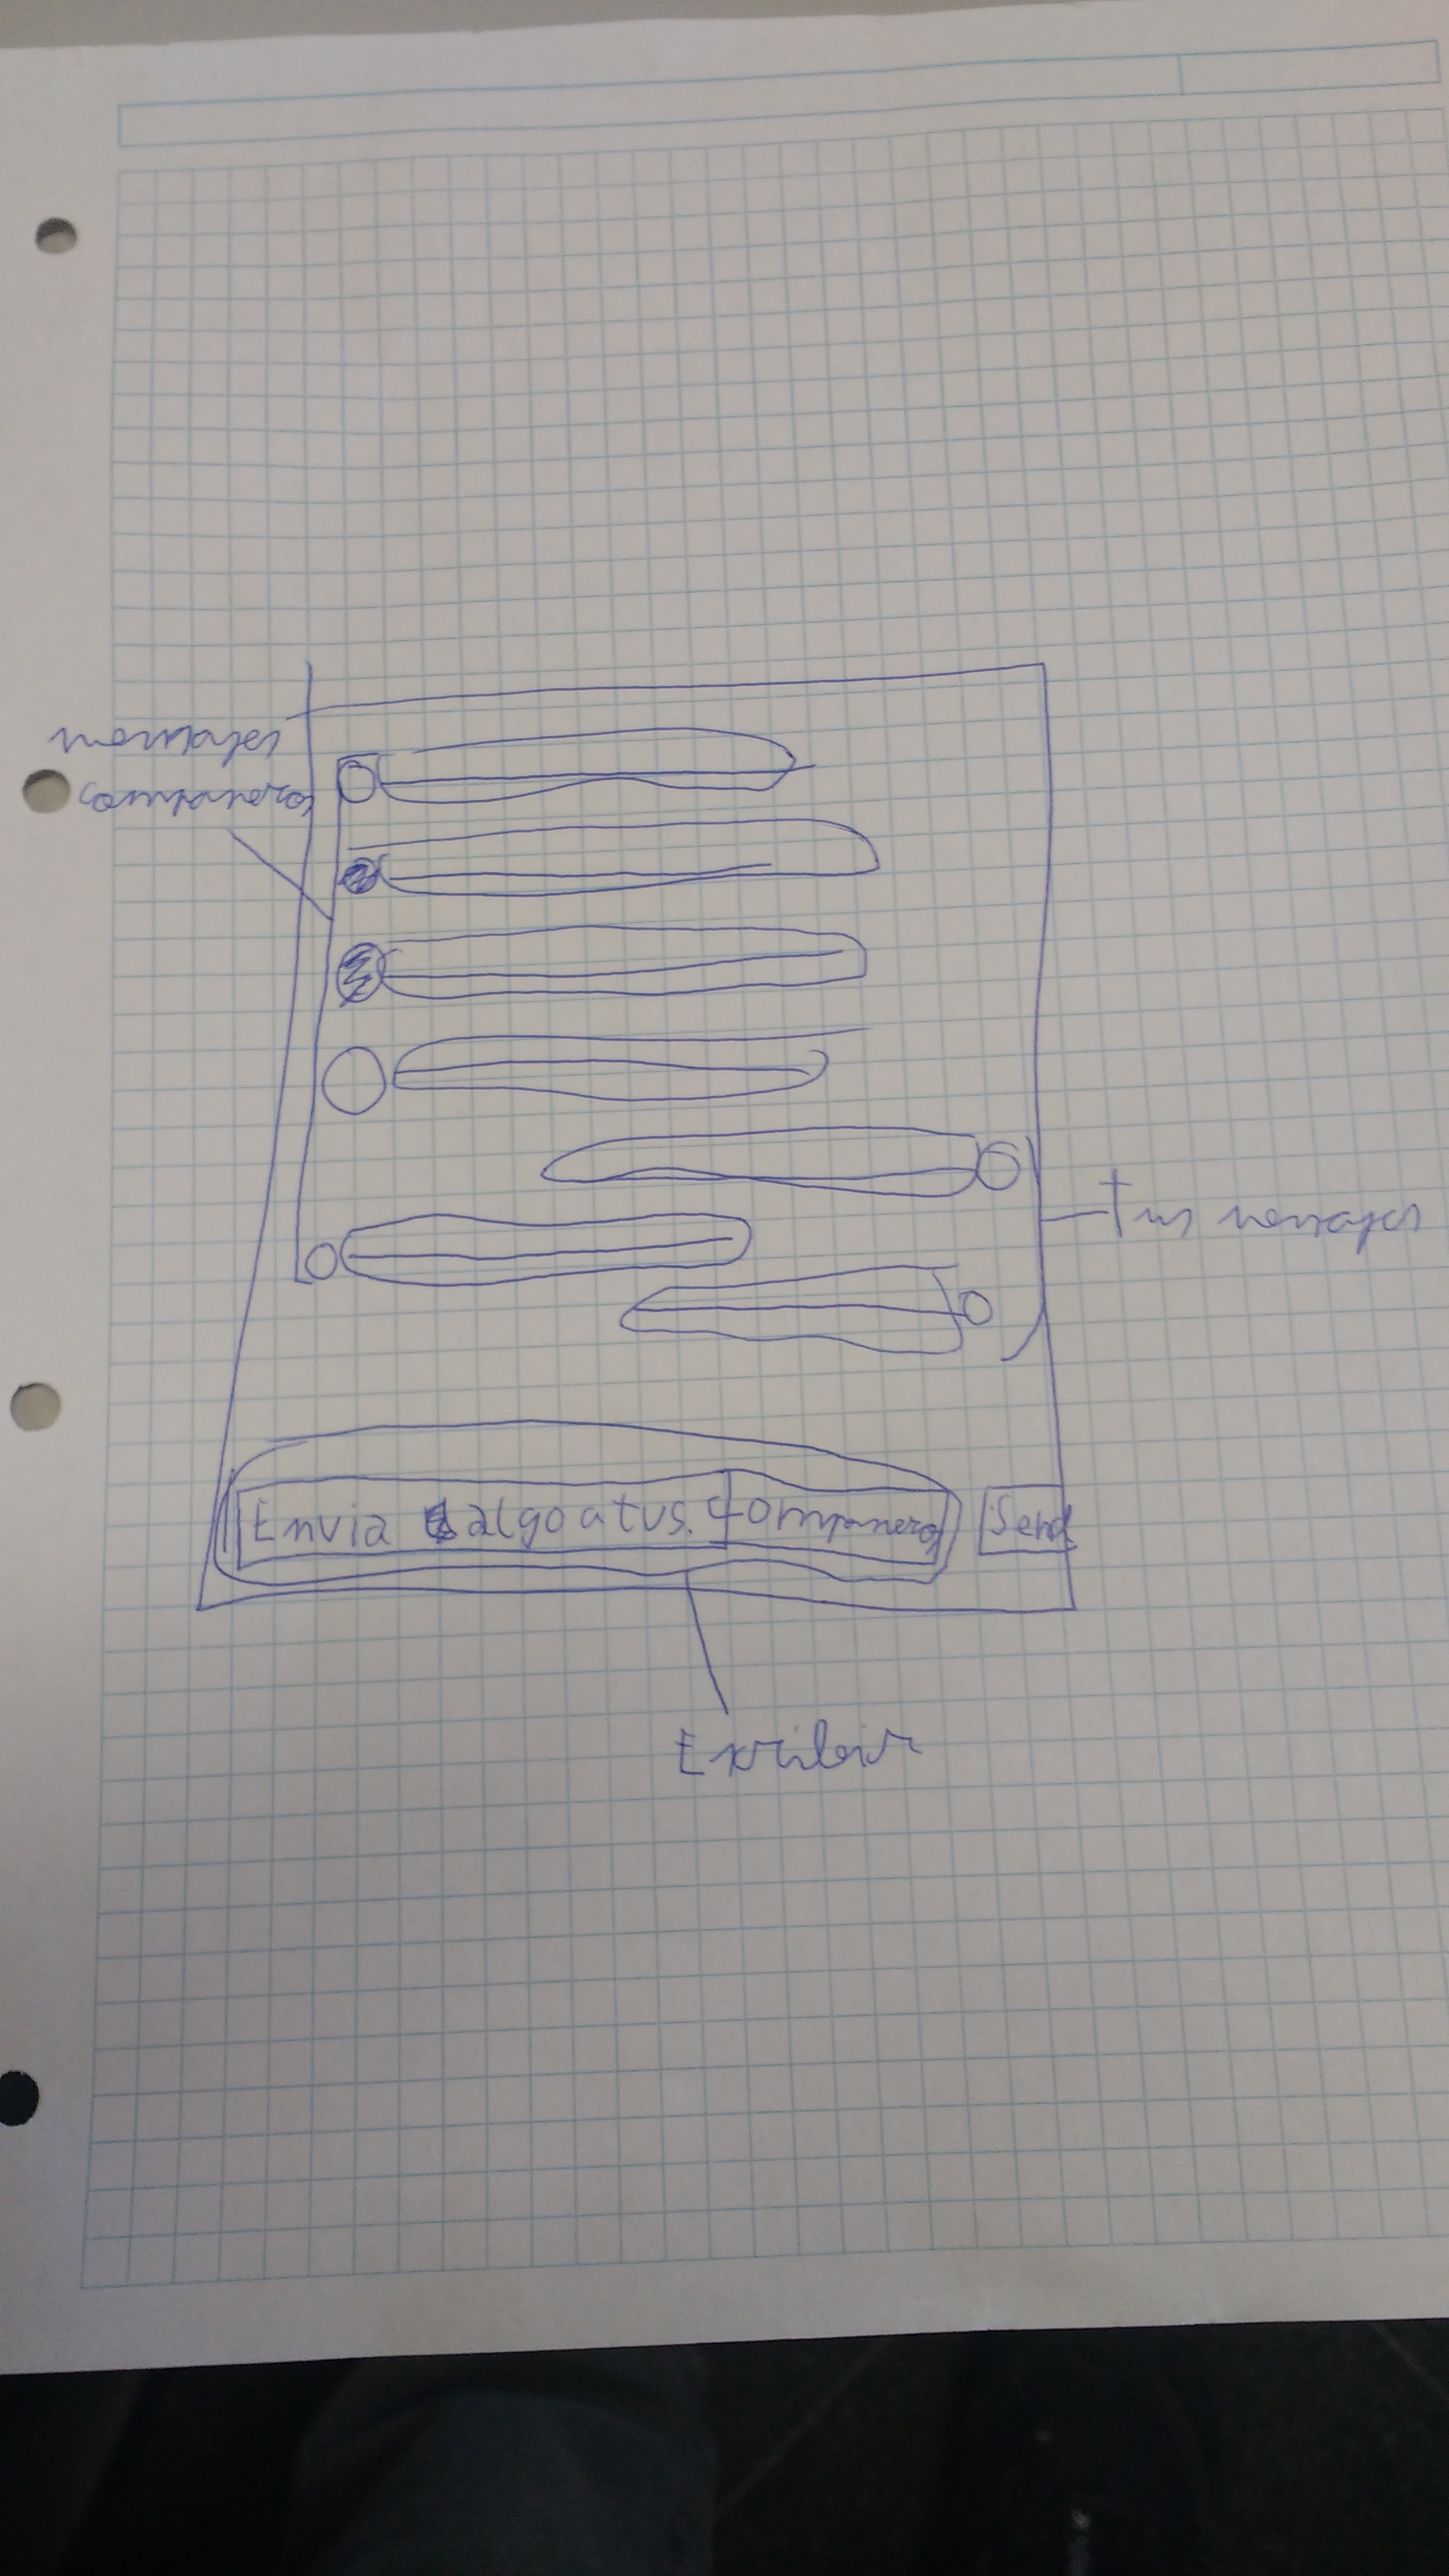 mensajes
compañeros
tus mensajes
Envia algo a tus compañeros
Send
Escribir